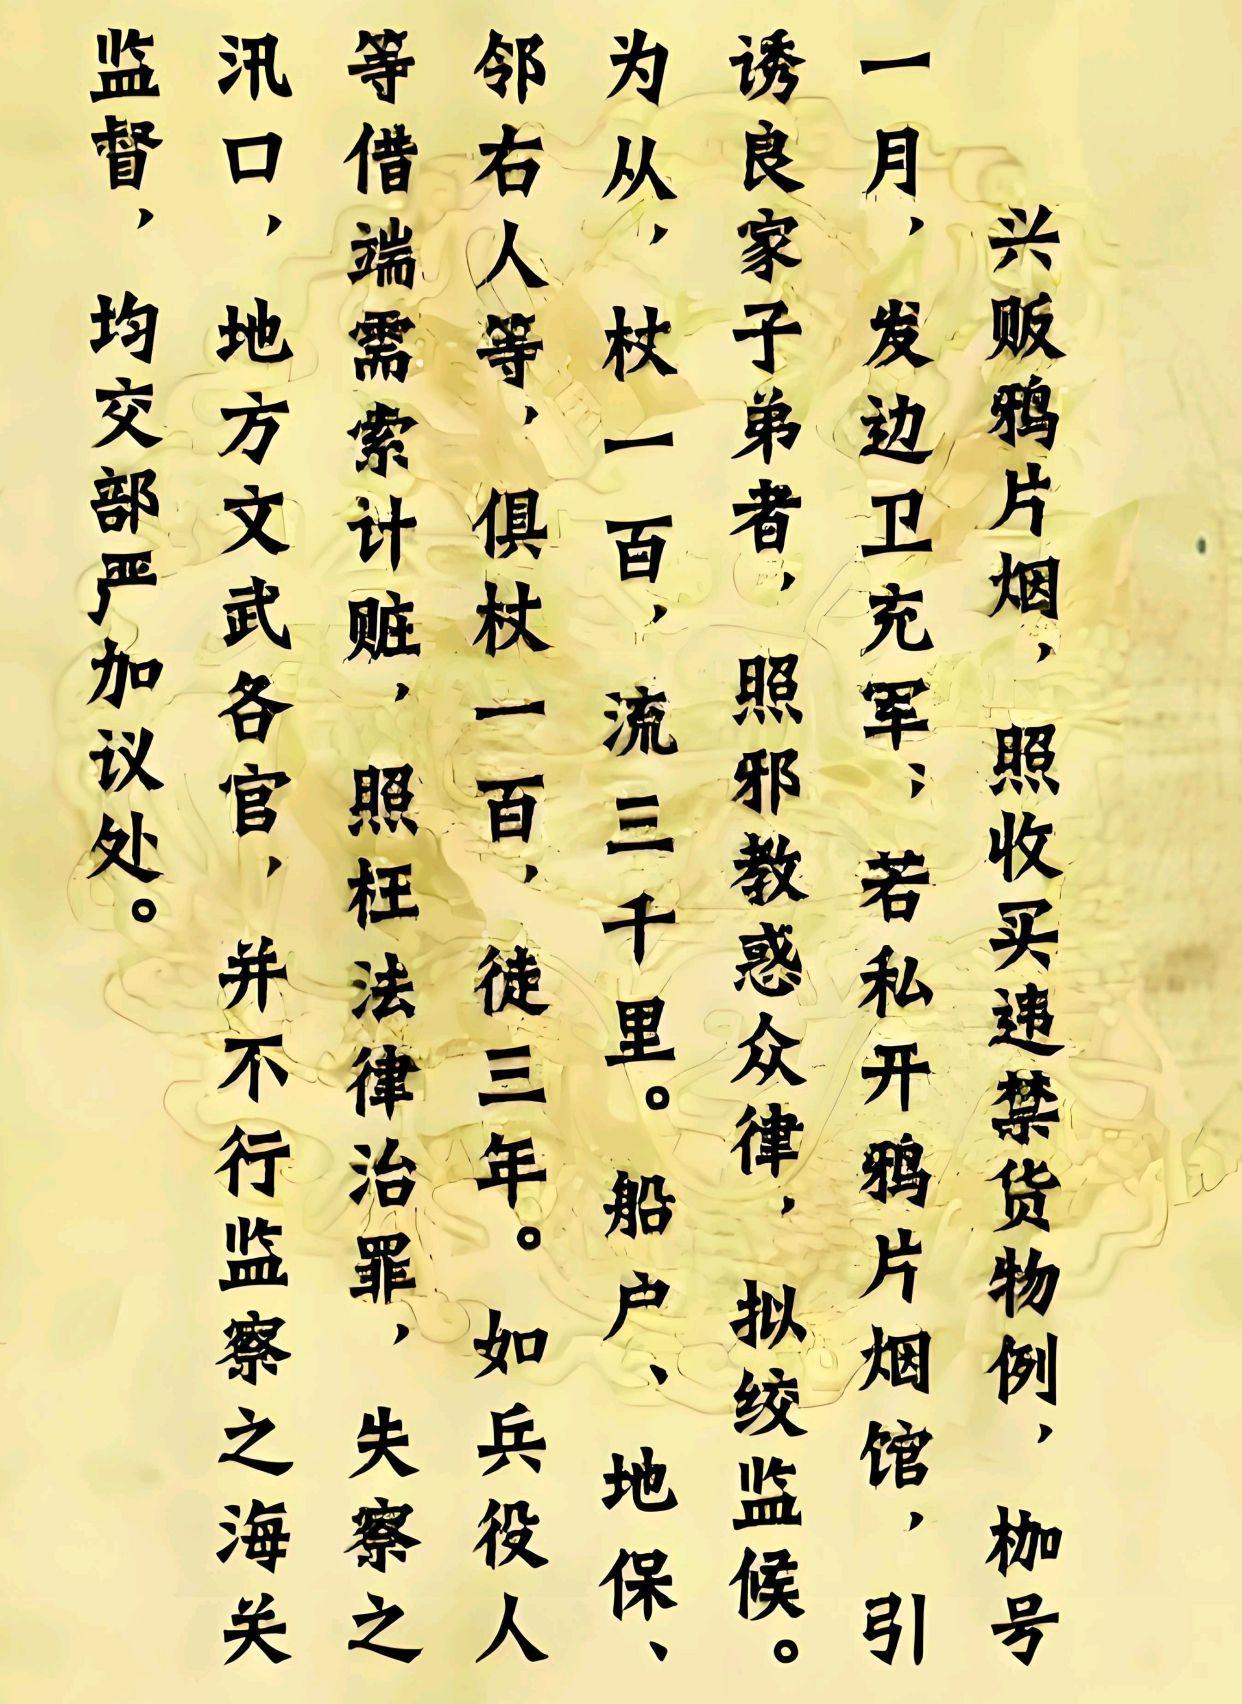 兴贩鸦片烟，照收买违禁货物例，枷号
一月，发边卫充军；若私开鸦片烟馆，引
诱良家子弟者，照邪教惑众律，拟绞监候。
为从，杖一百，流三千里。船户、地保、
邻右人等，俱杖一百，徒三年。如兵役人
等借端需索计赃，照枉法律治罪，失察之
汛口，地方文武各官，并不行监察之海关
监督，均交部严加议处。